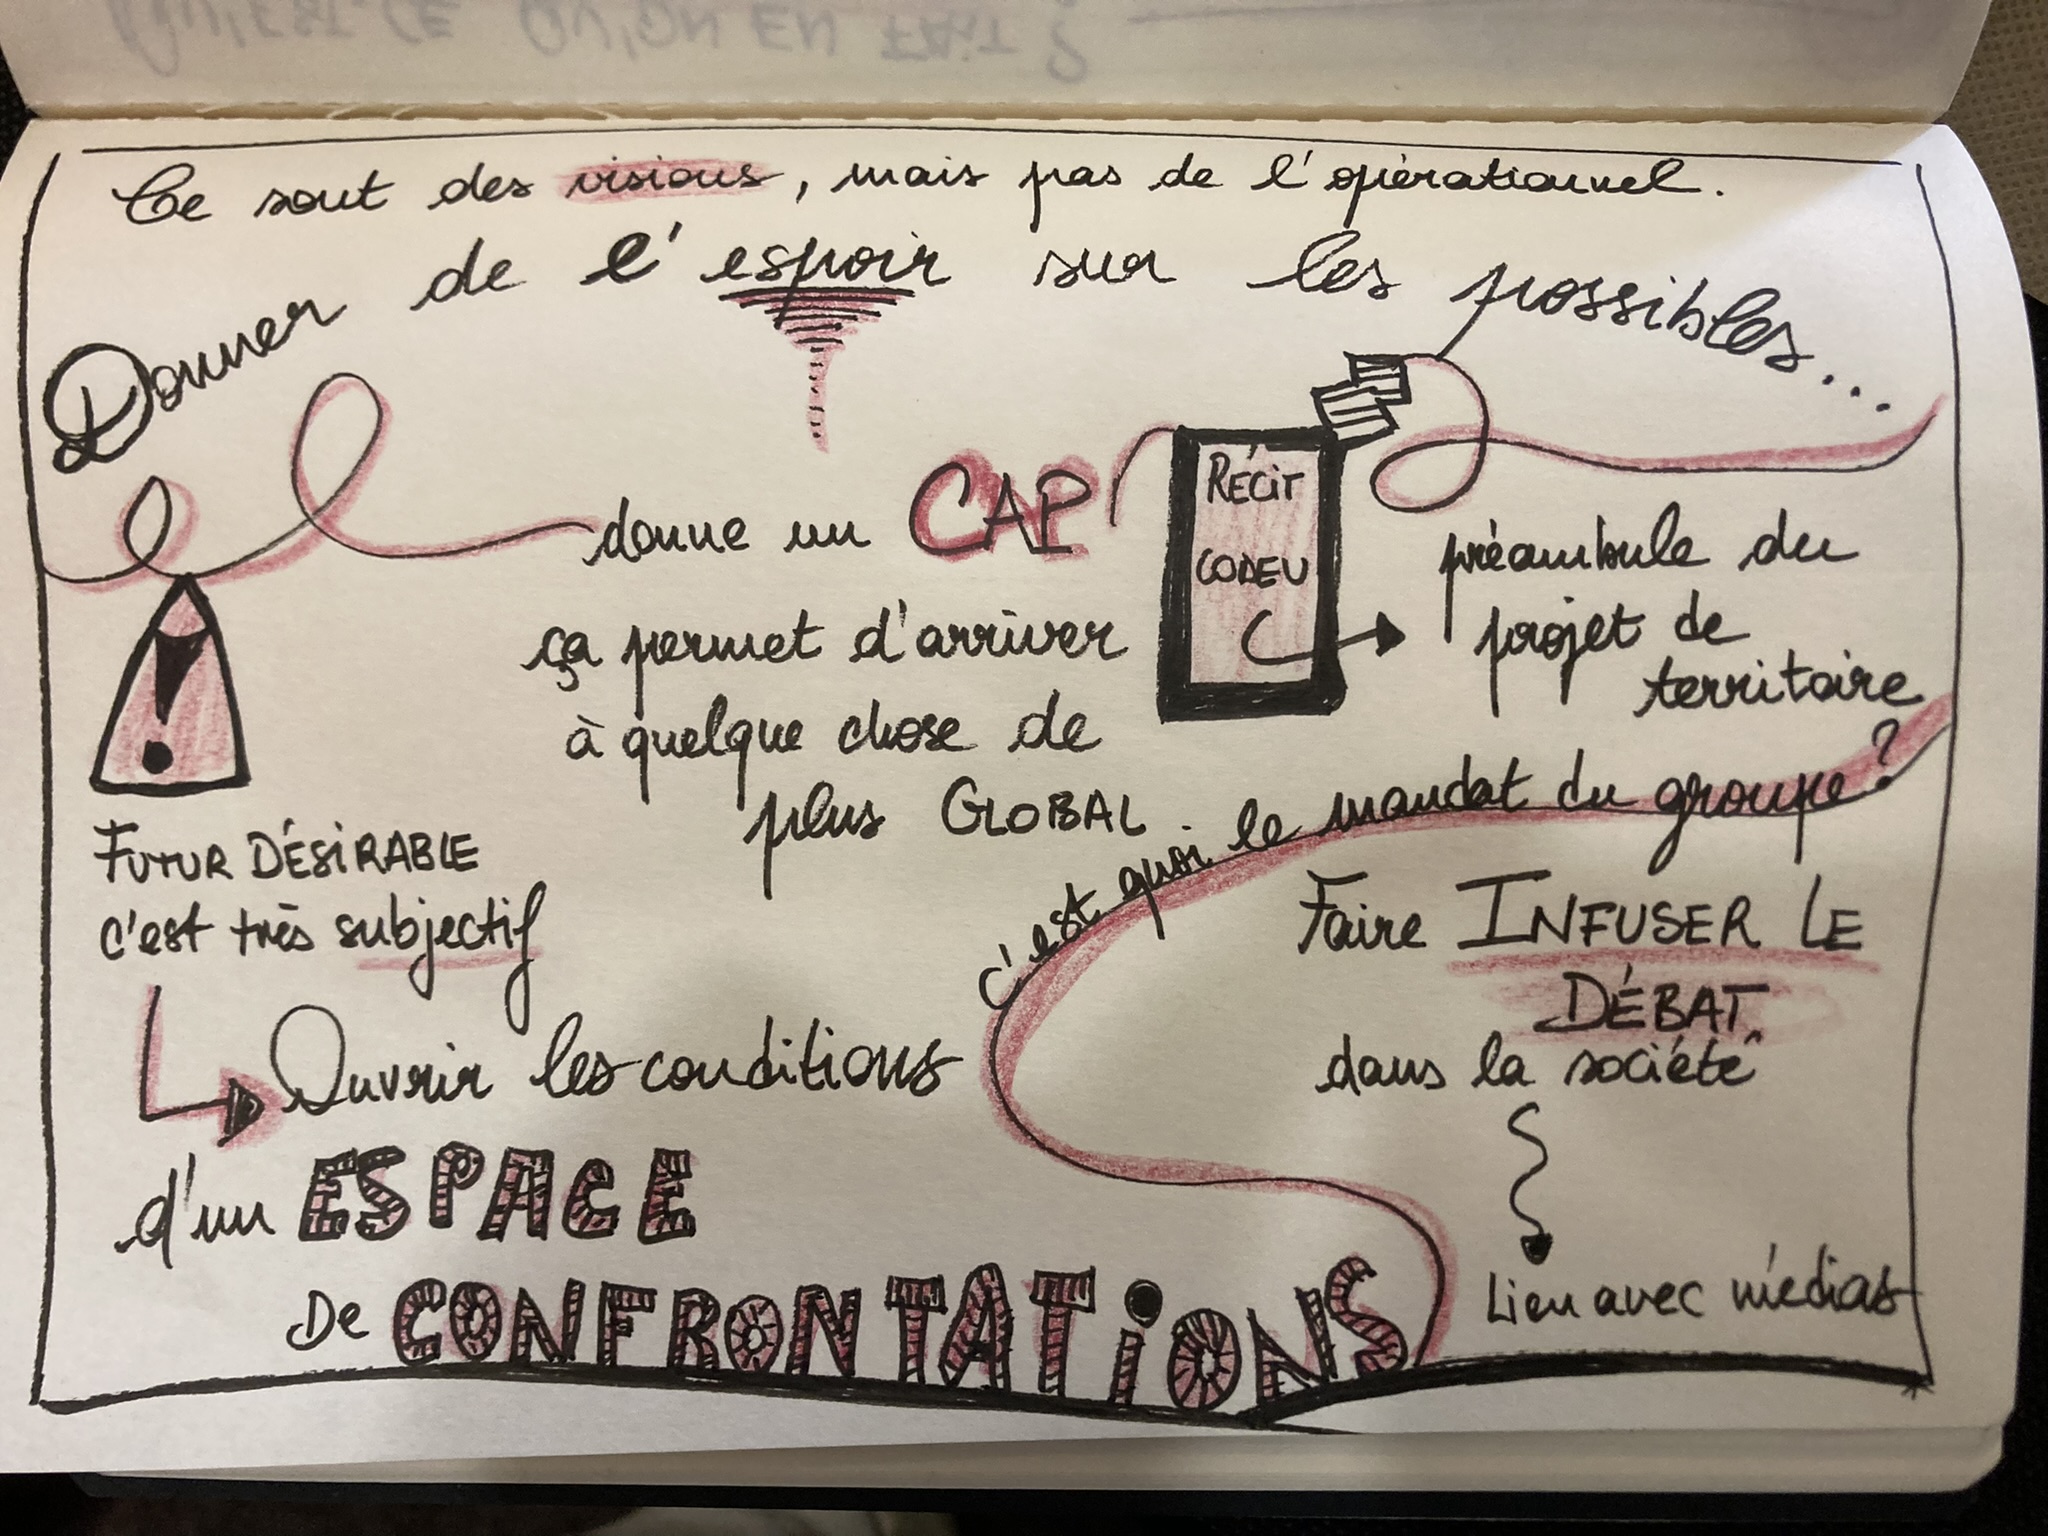 QU'EST-CE QU'ON EN FAIT ?
Ce sont des visions, mais pas de l'opérationnel.
Donner de l'espoir sur les possibles...
donne un CAP
ça permet d'arriver
à quelque chose de
plus GLOBAL
RÉCIT
CODEV
préambule du
projet de
territoire
!
FUTUR DÉSIRABLE
c'est très subjectif
Ouvrir les conditions
d'un ESPACE
De CONFRONTATIONS
c'est quoi le mandat du groupe ?
Faire INFUSER LE
DÉBAT
dans la société
Lien avec médias